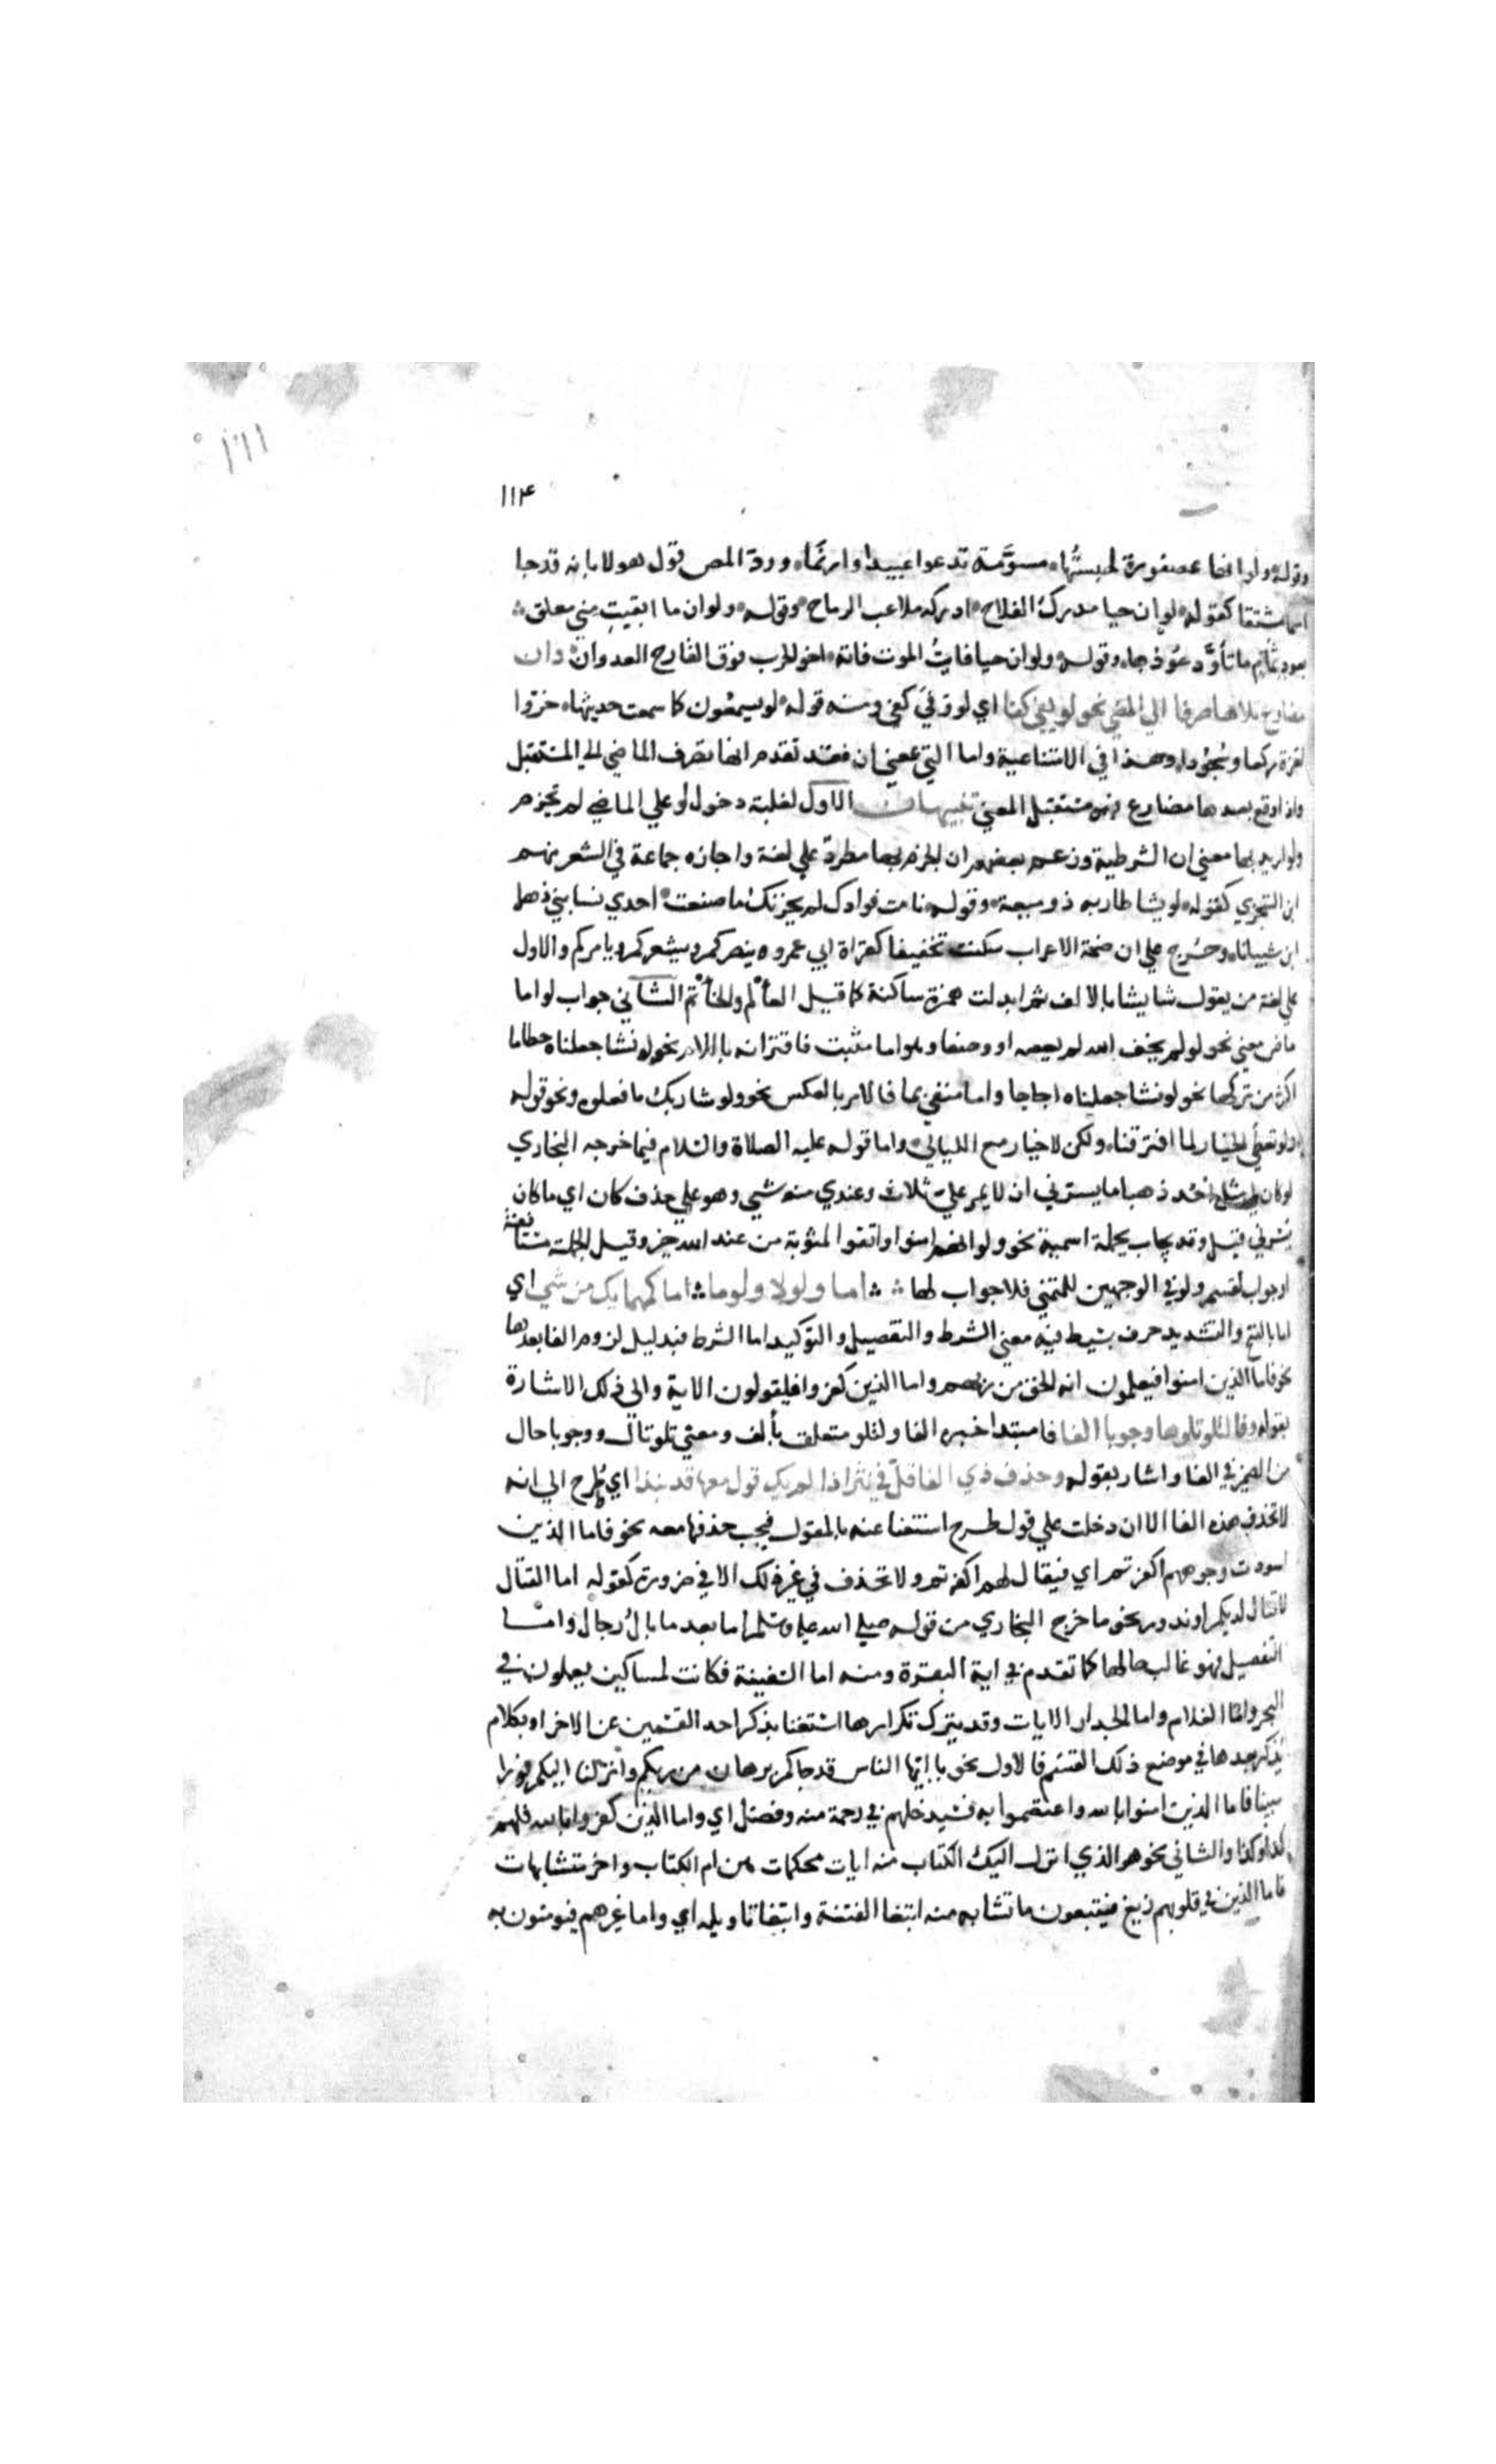 ١١٤
وقوله ولو انها عصفورة لحبستُها مسوَّمة تدعوا عبيدا وازنَما ورد المص قول هولا بانه قدجا
اسما مشتقا كقوله لو ان حيا مدركُ الفلاح ادركه ملاعب الرماح وقوله ولو ان ما ابقيتِ مني معلق
بعود ثمام ما تأوَّد عُودُها وقوله ولو ان حيا فايتُ الموت فاته اخو الحرب فوق القارح العدوان وان
مضارع تلاها صرفا الي المضي نحو لو يفي كفا اي لو وَفَي كفي ومنه قوله لو يسمعون كما سمعت حديثها خروا
لعزة ركعا وسُجُودا وهذا في الامتناعية واما التي بمعني ان فقد تقدم انها تصرف الماضي الي المستقبل
واذا وقع بعدها مضارع فهو مستقبل المعني تنبيهات الاول لغلبة دخول لو علي الماضي لم تجزم
ولو اريد بها معني ان الشرطية وزعم بعضهم ان الجزم بها مطرد علي لغة واجازه جماعة في الشعر منهم
ابن الشجري كقوله لو يشا طار به ذو ميعة وقوله تامت فوادك لم يحزنك ما صنعت احدي نسا بني ذهل
ابن شيبانا وخُرج علي ان ضمة الاعراب سكنت تخفيفا كقراة ابي عمرو ينصركم ويشعركم ويامركم والاول
علي لغة من يقول شا يشا بالالف ثم ابدلت همزة ساكنة كما قيل العأْلم والخأْتم الثاني جواب لو اما
ماض معني نحو لو لم يخف الله لم يعصه او وضعا وهو اما مثبت فاقترانه باللام نحو لو نشا جعلناه حطاما
اكثر من تركها نحو لو نشا جعلناه اجاجا واما منفي بما فالامر بالعكس نحو ولو شا ربك ما فعلوه ونحو قوله
ولو نعطي الخيار لما افترقنا ولكن لا خيار مع الليالي واما قوله عليه الصلاة والسلام فيما خرجه البخاري
لو كان لي مثل احُد ذهبا ما يسرني ان لا يمر عليّ ثلاث وعندي منه شي وهو علي حذف كان اي ما كان
يسرني قيل وقد يجاب بجملة اسمية نحو ولو انهم امنوا واتقوا لمثوبة من عند الله خير وقيل الجملة مستانفة
او جواب لقسم ولو في الوجهين للتمني فلا جواب لها اما ولولا ولوما اما كمهما يك من شي اي
اما بالفتح والتشديد حرف بسيط فيه معني الشرط والتفصيل والتوكيد اما الشرط فبدليل لزوم الفا بعدها
نحو فاما الذين امنوا فيعلمون انه الحق من ربهم واما الذين كفروا فيقولون الاية والي ذلك الاشارة
بقوله وفا لتلو تلوها وجوبا الفا فا مبتدا خبره الفا ولتلو متعلق بألف ومعني تلو تال ووجوبا حال
من الضمير في الفا واشار بقوله وحذف ذي الفا قلّ في نثر اذا لم يك قول معها قد نبذا اي طُرح الي انه
لا تحذف هذه الفا الا ان دخلت علي قول طرح استغنا عنه بالمقول فيجب حذفها معه نحو فاما الذين
اسودت وجوههم اكفرتم اي فيقال لهم اكفرتم ولا تحذف في غير ذلك الا في ضرورة كقوله اما القتال
لا قتال لديكم او ندور نحو ما خرج البخاري من قوله صلي الله عليه وسلم اما بعد ما بالُ رجال واما
التفصيل فهو غالب حالها كما تقدم في اية البقرة ومنه اما السفينة فكانت لمساكين يعملون في
البحر واما الغلام واما الجدار الايات وقد يترك تكرارها استغنا بذكر احد القسمين عن الاخر او بكلام
يُذكر بعدها في موضع ذلك القسم فالاول نحو يا ايّها الناس قد جاكم برهان من ربكم وانزلنا اليكم نورا
مبينا فاما الذين امنوا بالله واعتصموا به فسيدخلهم في رحمة منه وفضل اي واما الذين كفروا بالله فلهم
كذا وكذا والثاني نحو هو الذي انزل اليك الكتاب منه ايات محكمات هن ام الكتاب واخر متشابهات
فاما الذين في قلوبهم زيغ فيتبعون ما تشابه منه ابتغا الفتنة وابتغا تاويله اي واما غيرهم فيومنون به